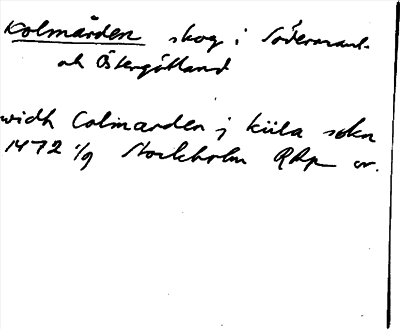 Kolmården skog i Södermanl.
och Östergötland
widh Colmarden j kiila sokn
1472 1/9 Stockholm RAp or.